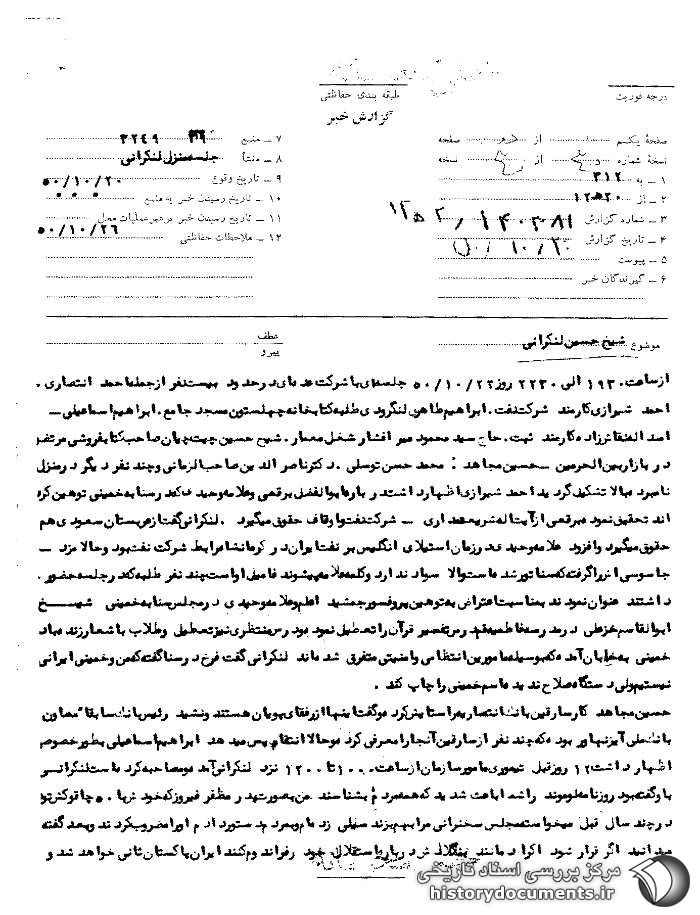 درجه فوریت
طبقه بندی حفاظتی
گزارش خبر
صفحه یکم از دو صفحه
نسخه شماره از نسخه
۱ – به ۳۱۲
۲ – از ۱۲ ه‍ ۲۰
۳ – شماره گزارش
۴ – تاریخ گزارش
۵ – پیوست
۶ – گیرندگان خبر
۷ – منبع ۳۲۴۹
۸ – منشأ جلسه منزل لنکرانی
۹ – تاریخ وقوع ۵۰/۱۰/۲۰
۱۰ – تاریخ رسیدن خبر به منبع
۱۱ – تاریخ رسیدن خبر به رهبر عملیات محل ۵۰/۱۰/۲۶
۱۲ – ملاحظات حفاظتی
موضوع شیخ حسین لنکرانی
عطف
پیرو
از ساعت ۱۹۳۰ الی ۲۲۳۰ روز ۵۰/۱۰/۲۲ جلسه‌ای با شرکت عده‌ای در حدود بیست نفر از جمله احمد انتصاری .
احمد شیرازی کارمند شرکت نفت . ابراهیم طاهری لنگرودی طلبه کتابخانه چهلستون مسجد جامع . ابراهیم اسماعیلی –
اسد اله نقاش زاده کارمند ثبت . حاج سید محمود میر افشار شغل معمار . شیخ حسین چیت چیان صاحب کتابفروشی مرتضوی
در بازار بین الحرمین – حسین مجاهد : محمد حسن توسلی . دکتر ناصر الدین صاحب الزمانی و چند نفر دیگر در منزل
نامبرد بالا تشکیل گردید احمد شیرازی اظهار داشت درباره ابوالفضل برقعی و علامه وحیدی که در سنا به خمینی توهین کرده
اند تحقیق نمود برقعی از آیت اله شریعتمداری – شرکت نفت و اوقاف حقوق میگیرد . لنکرانی گفت از عربستان سعودی هم
حقوق میگیرد و افزود علامه وحیدی در زمان استیلای انگلیس بر نفت ایران در کرمانشاه رابط شرکت نفت بود و حالا مزد –
جاسوسی آنرا گرفته که سناتور شده است والا سواد ندارد و کلمه علامه فامیل او است چند نفر طلبه که در جلسه حضور .
داشتند عنوان نمودند بمناسبت اعتراض به توهین پروفسور جمشید اعلم و علامه وحیدی در مجلس سنا به خمینی شیخ
ابوالقاسم خزعلی در مدرسه فاطمیه قم درس تفسیر قرآن را تعطیل نمود درس منتظری نیز تعطیل و طلاب با شعار زنده باد
خمینی به خیابان آمده که بوسیله مامورین انتظامی و امنیتی متفرق شده‌اند لنکرانی گفت فرخ در سنا گفته که من و خمینی ایرانی
نیستیم ولی دستگاه صلاح ندیده اسم خمینی را چاپ کند .
حسین مجاهد کار سارقین بانک انتصاریه را ستایش کرد و گفت اینها از رفقای پویان هستند و نشید رئیس بانک سابقا" معاون
بانک ملی آیزنهاور بوده که چند نفر از سارقین آنجا را معرفی کرد و حالا انتقام پس میدهد ابراهیم اسماعیلی بطور خصوص
اظهار داشت ۱۲ روز قبل تیموری مامور سازمان از ساعت ۱۰۰۰ تا ۱۲۰۰ نزد لنکرانی آمده و مصاحبه کرده است لنکرانی
باو گفته بود روزنامه علومند را شما باعث شدید که همه مردم بشناسند من بصورت پدر مظفر فیروز که خود ترا ۵ چاقو کش تو
در چند سال قبل میخواسته مجلس سخنرانی مرا بهم بزند سیلی زده‌ام و بمردم دستور دادم او را مضروب کردند و بعد گفته
میدانید اگر قرار شود اکراد مانند بنگلادش درباره استقلال خود رفراندوم کنند ایران پاکستان ثانی خواهد شد و
مرکز بررسی اسناد تاریخی
historydocuments.ir